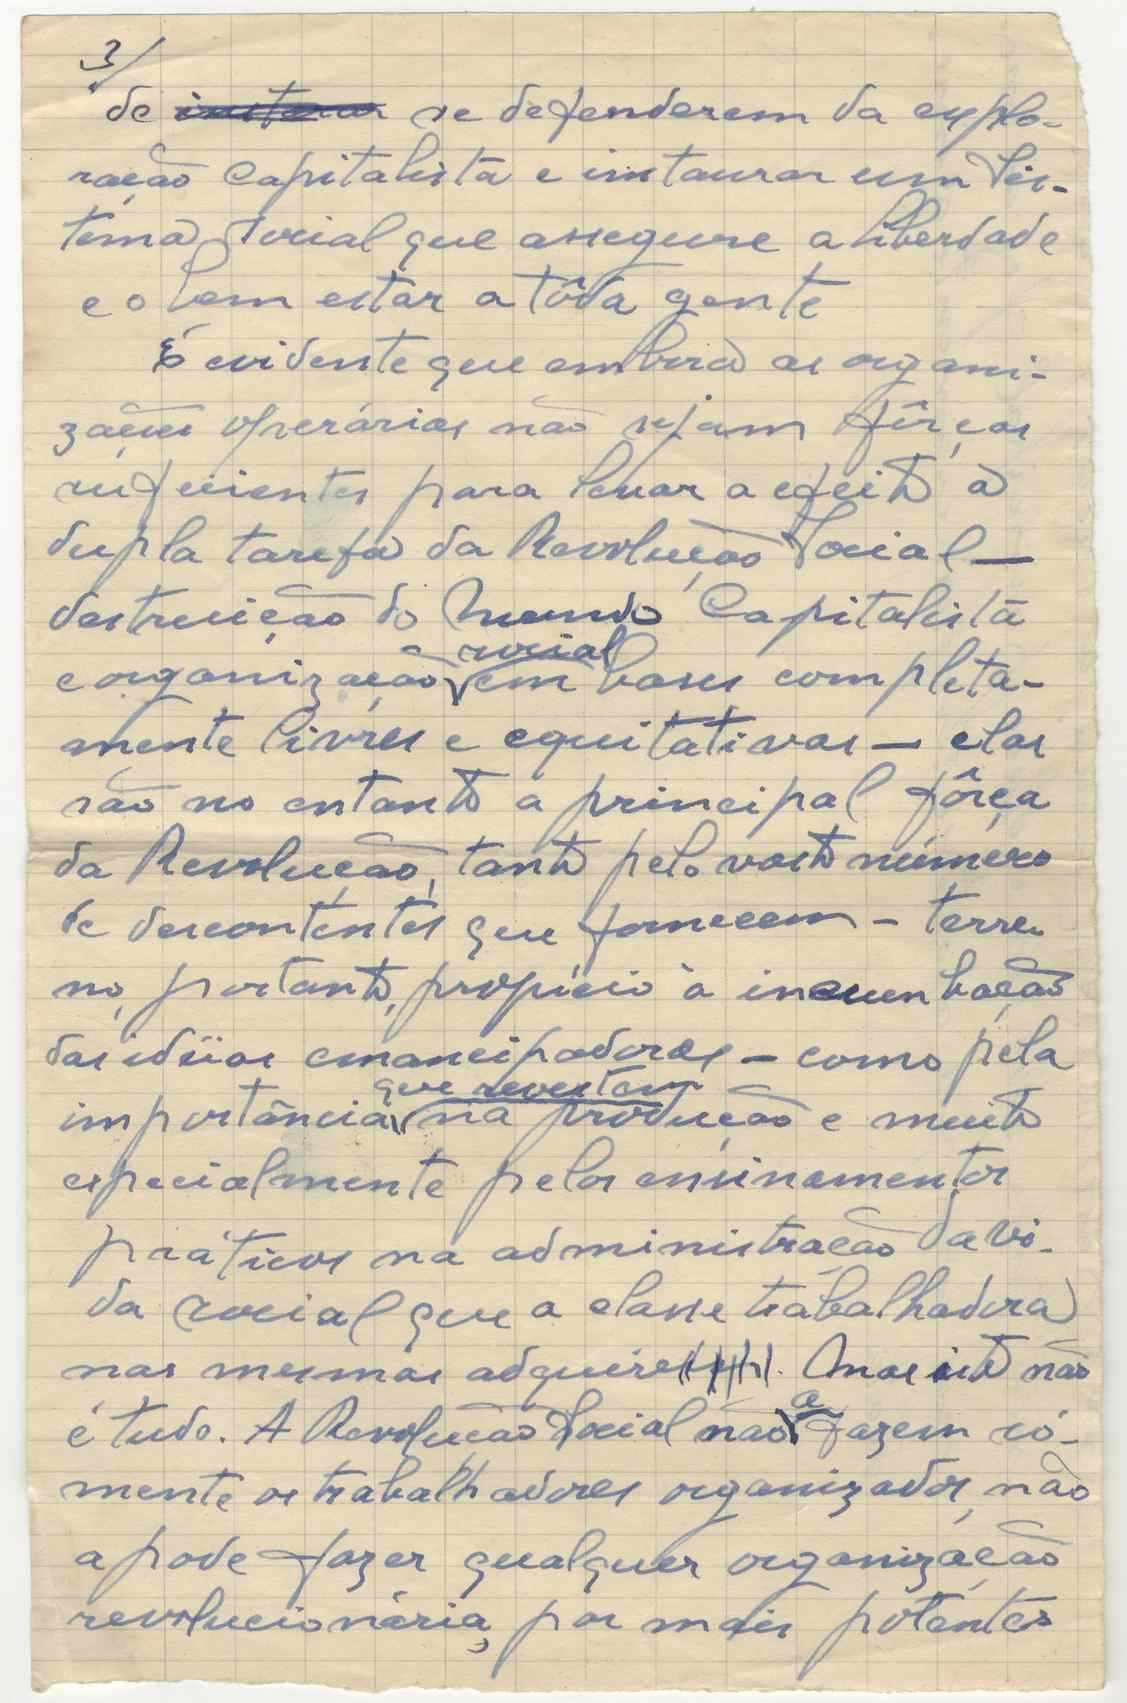 3/
de se defenderem da explo-
ração Capitalista e instaurar um Sis-
tema Social que assegure a liberdade
e o bem estar a tôda gente
É evidente que embora as organi-
zações operárias não sejam fôrças
suficientes para levar a efeito a
dupla tarefa da Revolução Social —
destruição do Mundo Capitalista
e organização social em bases completa-
mente livres e equitativas — elas
são no entanto a principal fôrça
da Revolução, tanto pelo vasto número
de descontentes que fornecem - terre-
no, portanto, propício à incumbação
das idéias emancipadoras - como pela
importância que revestem na produção e muito
especialmente pelos ensinamentos
práticos na administração da vi-
da social que a classe trabalhadora
nas mesmas adquire. Mas isto não
é tudo. A Revolução Social não a fazem sò-
mente os trabalhadores organizados, não
a pode fazer qualquer organização
revolucionária, por mais potentes